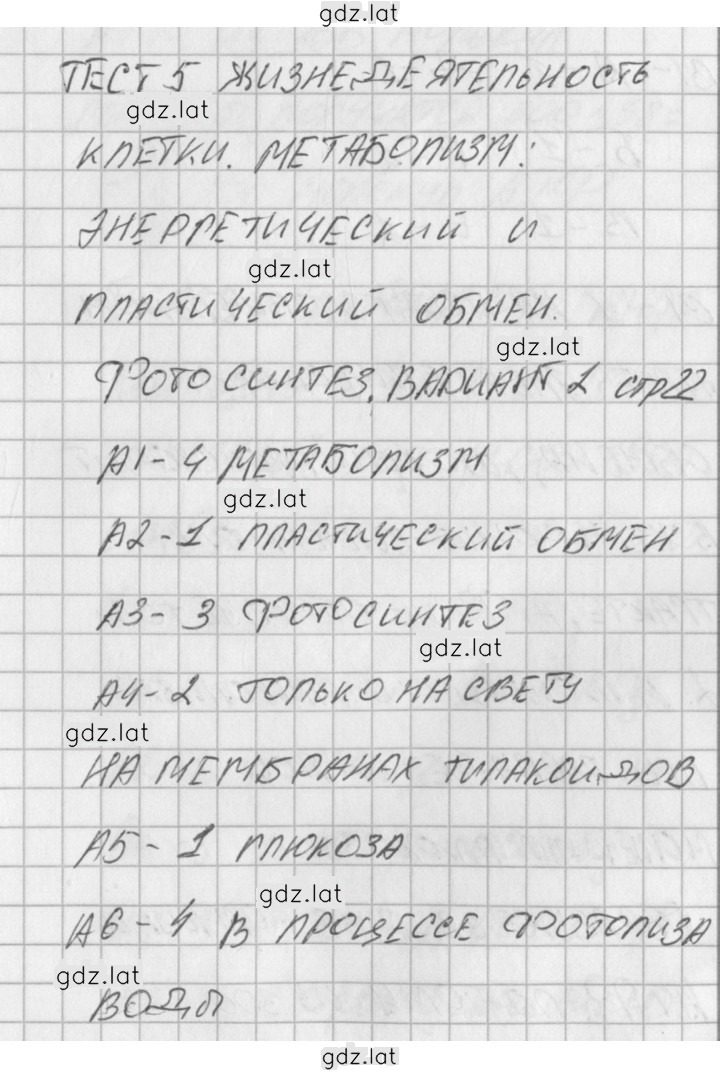 gdz.lat
ТЕСТ 5 ЖИЗНЕДЕЯТЕЛЬНОСТЬ
gdz.lat
КЛЕТКИ. МЕТАБОЛИЗМ:
ЭНЕРГЕТИЧЕСКИЙ И
gdz.lat
ПЛАСТИЧЕСКИЙ ОБМЕН.
gdz.lat
ФОТОСИНТЕЗ. ВАРИАНТ 2 стр 22
А1-4 МЕТАБОЛИЗМ
gdz.lat
А2-1 ПЛАСТИЧЕСКИЙ ОБМЕН
А3-3 ФОТОСИНТЕЗ
gdz.lat
А4-2 ТОЛЬКО НА СВЕТУ
gdz.lat
НА МЕМБРАНАХ ТИЛАКОИДОВ
А5-1 ГЛЮКОЗА
gdz.lat
А6-4 В ПРОЦЕССЕ ФОТОЛИЗА
gdz.lat
ВОДЫ
gdz.lat